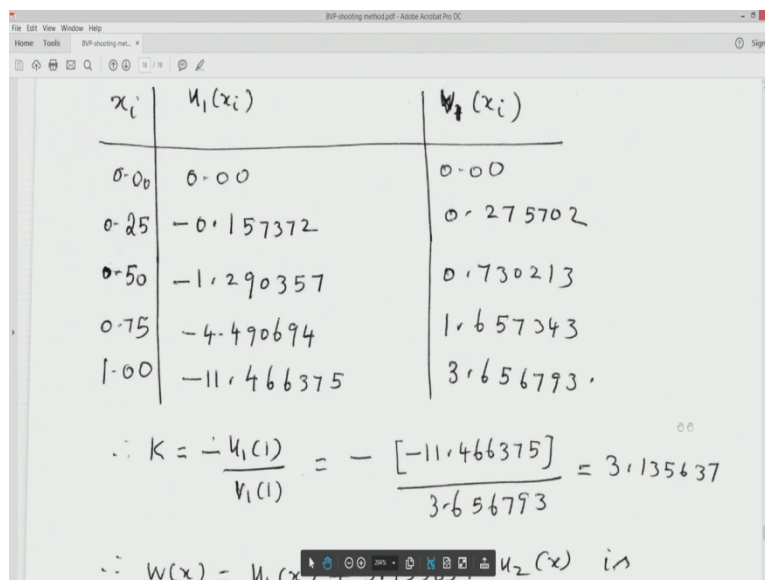 BVP-shooting method.pdf - Adobe Acrobat Pro DC
File Edit View Window Help
Home Tools BVP-shooting met... × Sign
18 / 19
xᵢ u₁(xᵢ) v₁(xᵢ)
0.00 0.00 0.00
0.25 -0.157372 0.275702
0.50 -1.290357 0.730213
0.75 -4.490694 1.657343
1.00 -11.466375 3.656793.
∴ K = -u₁(1) / v₁(1) = - [-11.466375] / 3.656793 = 3.135637
204%
∴ W(x) = u₁(x) u₂(x) is